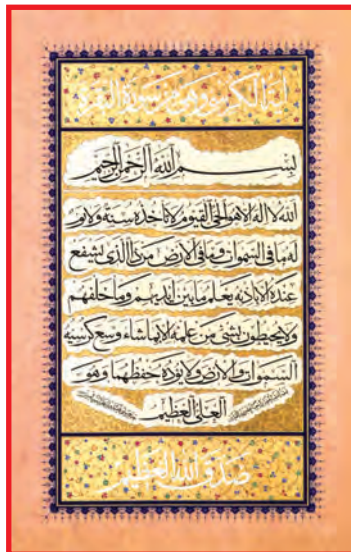 آية الكرسي وهو من سورة البقرة
بسم الله الرحمن الرحيم
الله لا اله الا هو الحي القيوم لا تأخذه سنة ولا نوم
له ما في السموات وما في الارض من ذا الذي يشفع
عنده الا باذنه يعلم ما بين ايديهم وما خلفهم
ولا يحيطون بشئ من علمه الا بما شاء وسع كرسيه
السموات والارض ولا يؤده حفظهما وهو
العلي العظيم
صدق الله العظيم